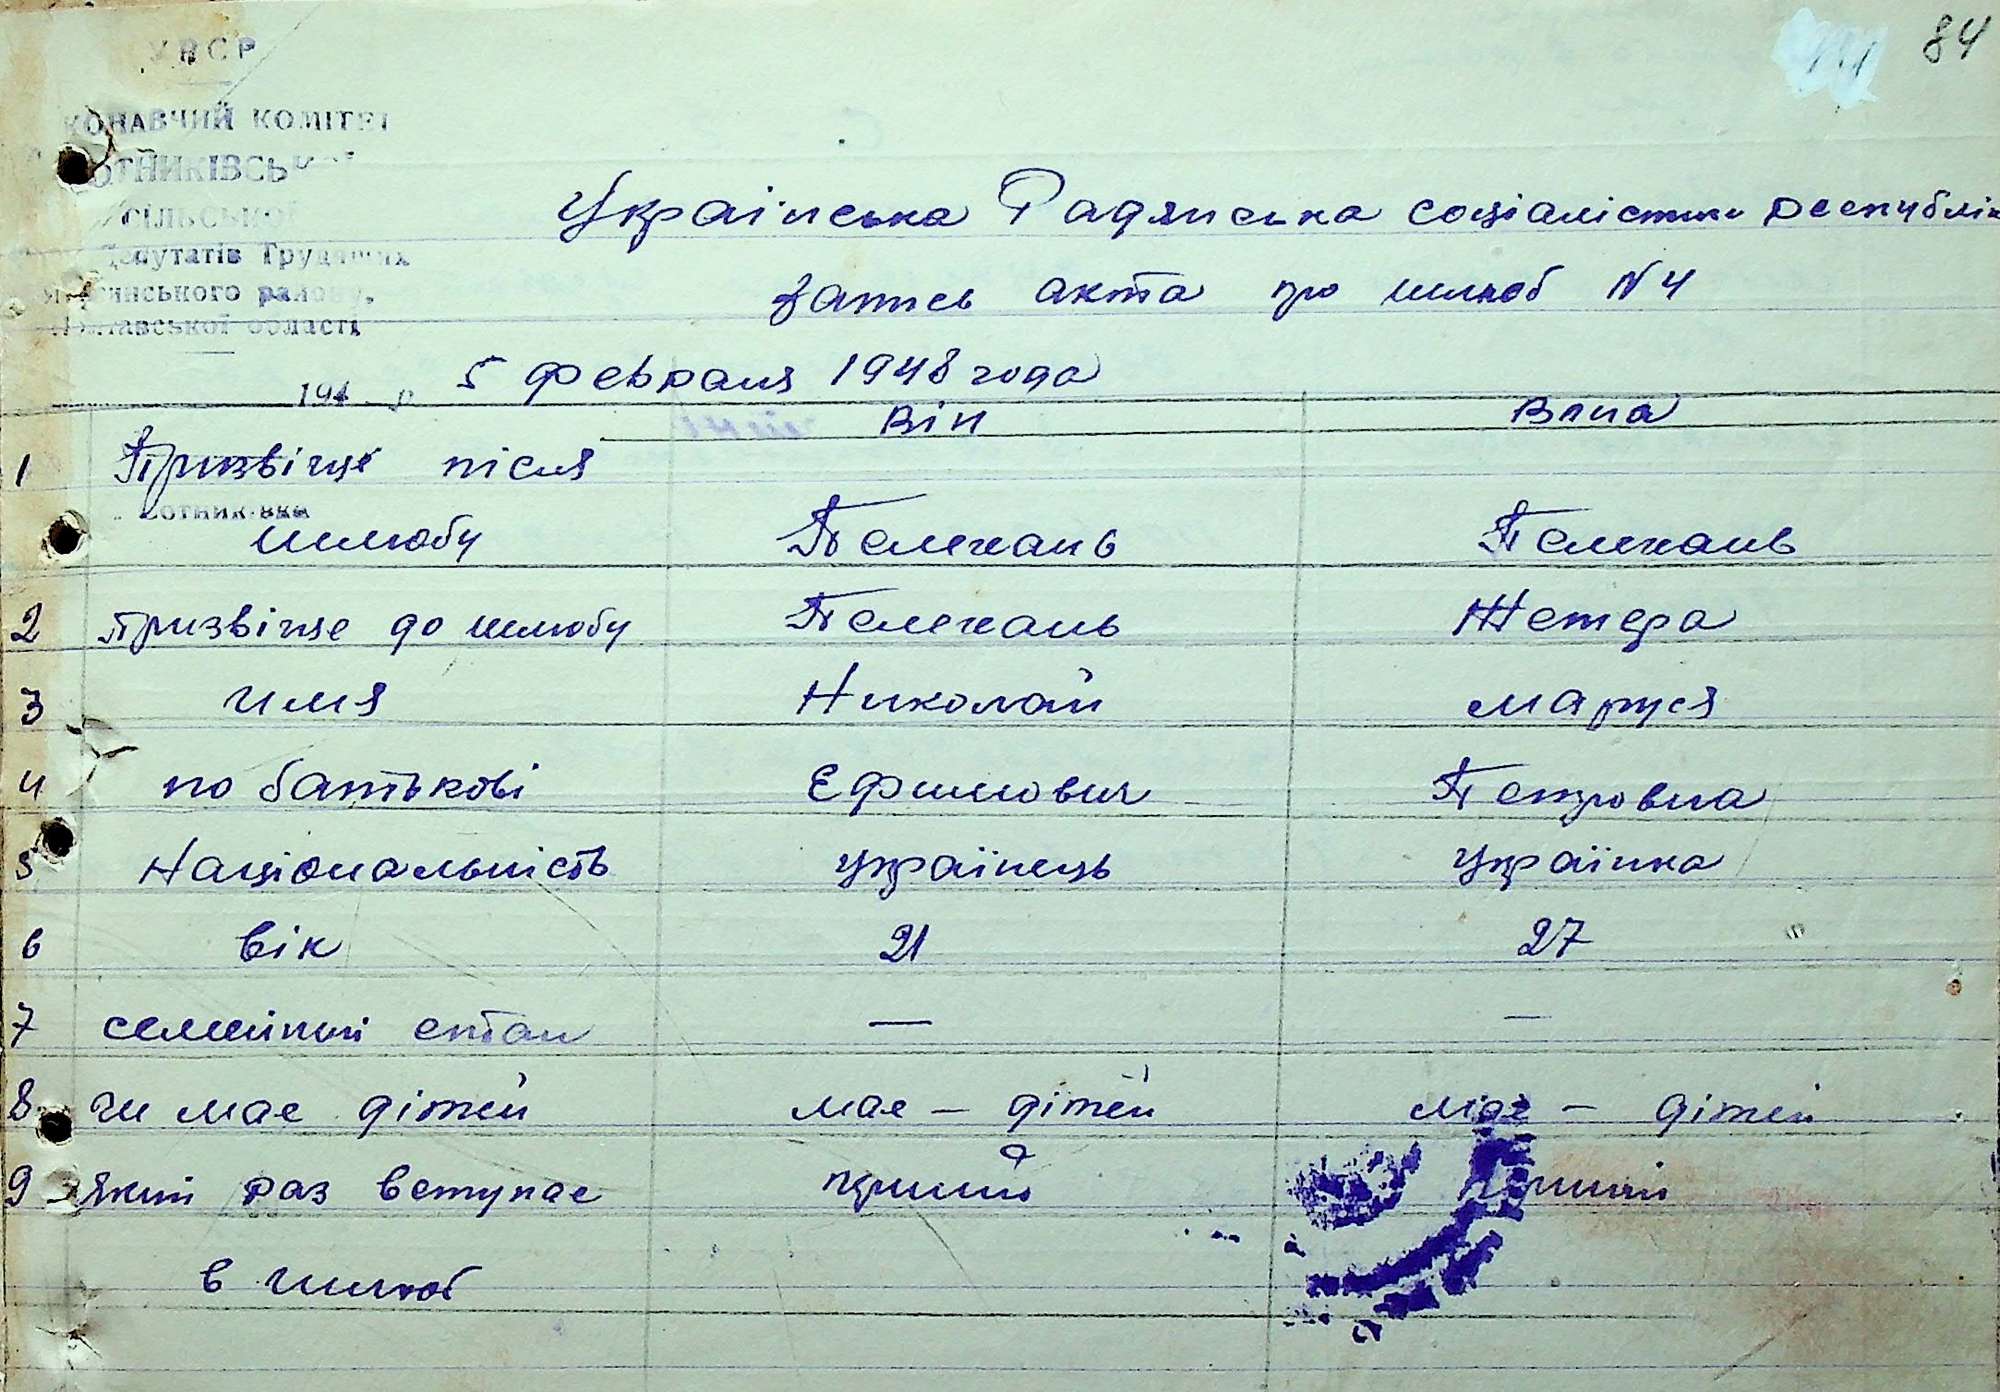 84
УРСР
КОНАВЧИЙ КОМІТЕТ
ОТНИКІВСЬК
СІЛЬСЬКОЇ
Депутатів Трудящих
ського району,
Полтавської області
194 р
Українська Радянська соціалістична республік
запись акта про шлюб N4
5 февраля 1948 года
Він Вона
1 Призвіще після
отник вка
шлюбу Пелехань Пелехань
2 призвіще до шлюбу Пелехань Жетера
3 имя Николай маруся
4 по батькові Ефимович Петровна
5 Національність українець українка
6 вік 21 27
7 семейний стан — —
8 чи мае дітей мае — дітей мае — дітей
9 який раз вступае перший перший
в шлюб